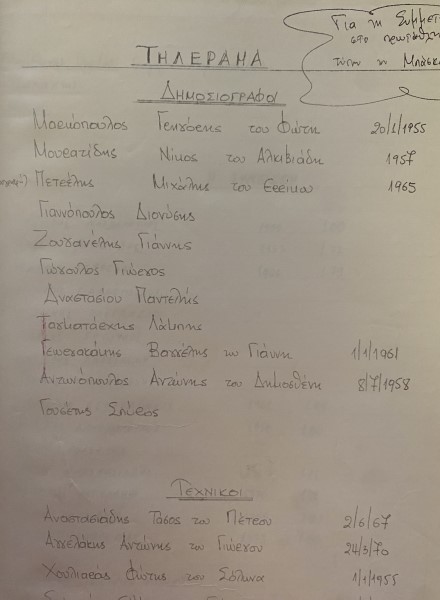 Για τη Συμμετ
στο πρωτάθλη
τύπου κ Μπάσκ
ΤΗΛΕΡΑΜΑ
ΔΗΜΟΣΙΟΓΡΑΦΟΙ
Μαρκόπουλος Γρηγόρης του Φώτη 20/1/1955
Μουρατίδης Νίκος του Αλκιβιάδη 1957
Πετρέλης Μιχάλης του Ερρίκου 1965
Γιαννόπουλος Διονύσης
Ζουγανέλης Γιάννης
Γιώγουλος Γιώργος
Αναστασίου Παντελής
Ταγματάρχης Λάμπης
Γεωργακάκης Βαγγέλης του Γιάννη 1/1/1961
Αντωνόπουλος Αντώνης του Δημοσθένη 8/7/1958
Γουσέτης Σπύρος
ΤΕΧΝΙΚΟΙ
Αναστασιάδης Τάσος του Πέτρου 2/6/67
Αγγελάκης Αντώνης του Γιώργου 24/3/70
Χουλιαράς Φώτης του Σόλωνα 1/1/1955